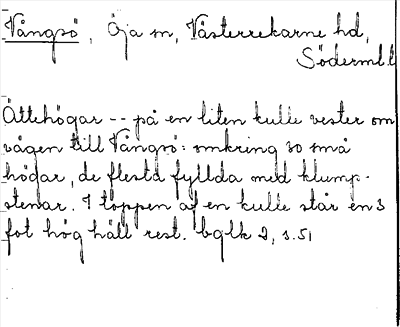 Vångsö, Öja sn, Västerrekarne hd,
Södermll
Ättehögar -- på en liten kulle vester om
vägen till Vångsö: omkring 30 små
högar, de flesta fyllda med klump-
stenar. I toppen af en kulle står en 3
fot hög häll rest. bglk 2, s. 51